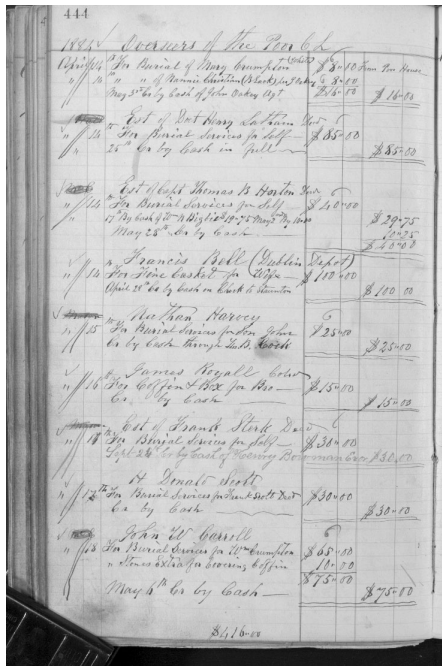 444
1884 Overseers of the Poor Ch
April 14th For Burial of Mary Crumpton (Cold) $8=00 From Poor House
" 14 " " of Nannie Christian (Black) for J Oakey $8=00
May 3rd Cr by Cash of John Oakey Agt $16=00 $16=00
Est of Doct Henry Latham Decd
" 14 th For Burial Services for Self $85=00
25th Cr by Cash in full $85=00
Est of Capt Thomas B Horton Decd
" 14 th For Burial Services for Self $40=00
$29=75
May 28th Cr by Cash 10=25
$40=00
Francis Bell (Dublin Depot)
" 14 For Fine Casket for Wife $100=00
April 28th Cr by Cash on Check to Staunton $100=00
Nathan Harvey
" 15 For Burial Services for son John $25=00
Cr by Cash through $25=00
James Royall Cold
" 16 For Coffin & Box for Bro $15=00
Cr by Cash $15=00
Est of Frank Sterk Decd
" 18 th For Burial Services for Self $30=00
Sept 26th Cr by Cash of Henry Bowman $30.00
H Donald Scott
" th For Burial Services for Frank Scott Decd $30=00
Cr by Cash $30=00
John W Carroll
" 18 For Burial Services for Wm Crumpton $65=00
" Stones extra for Covering Coffin 10=00
$75=00
May 6th Cr by Cash $75=00
$416=00